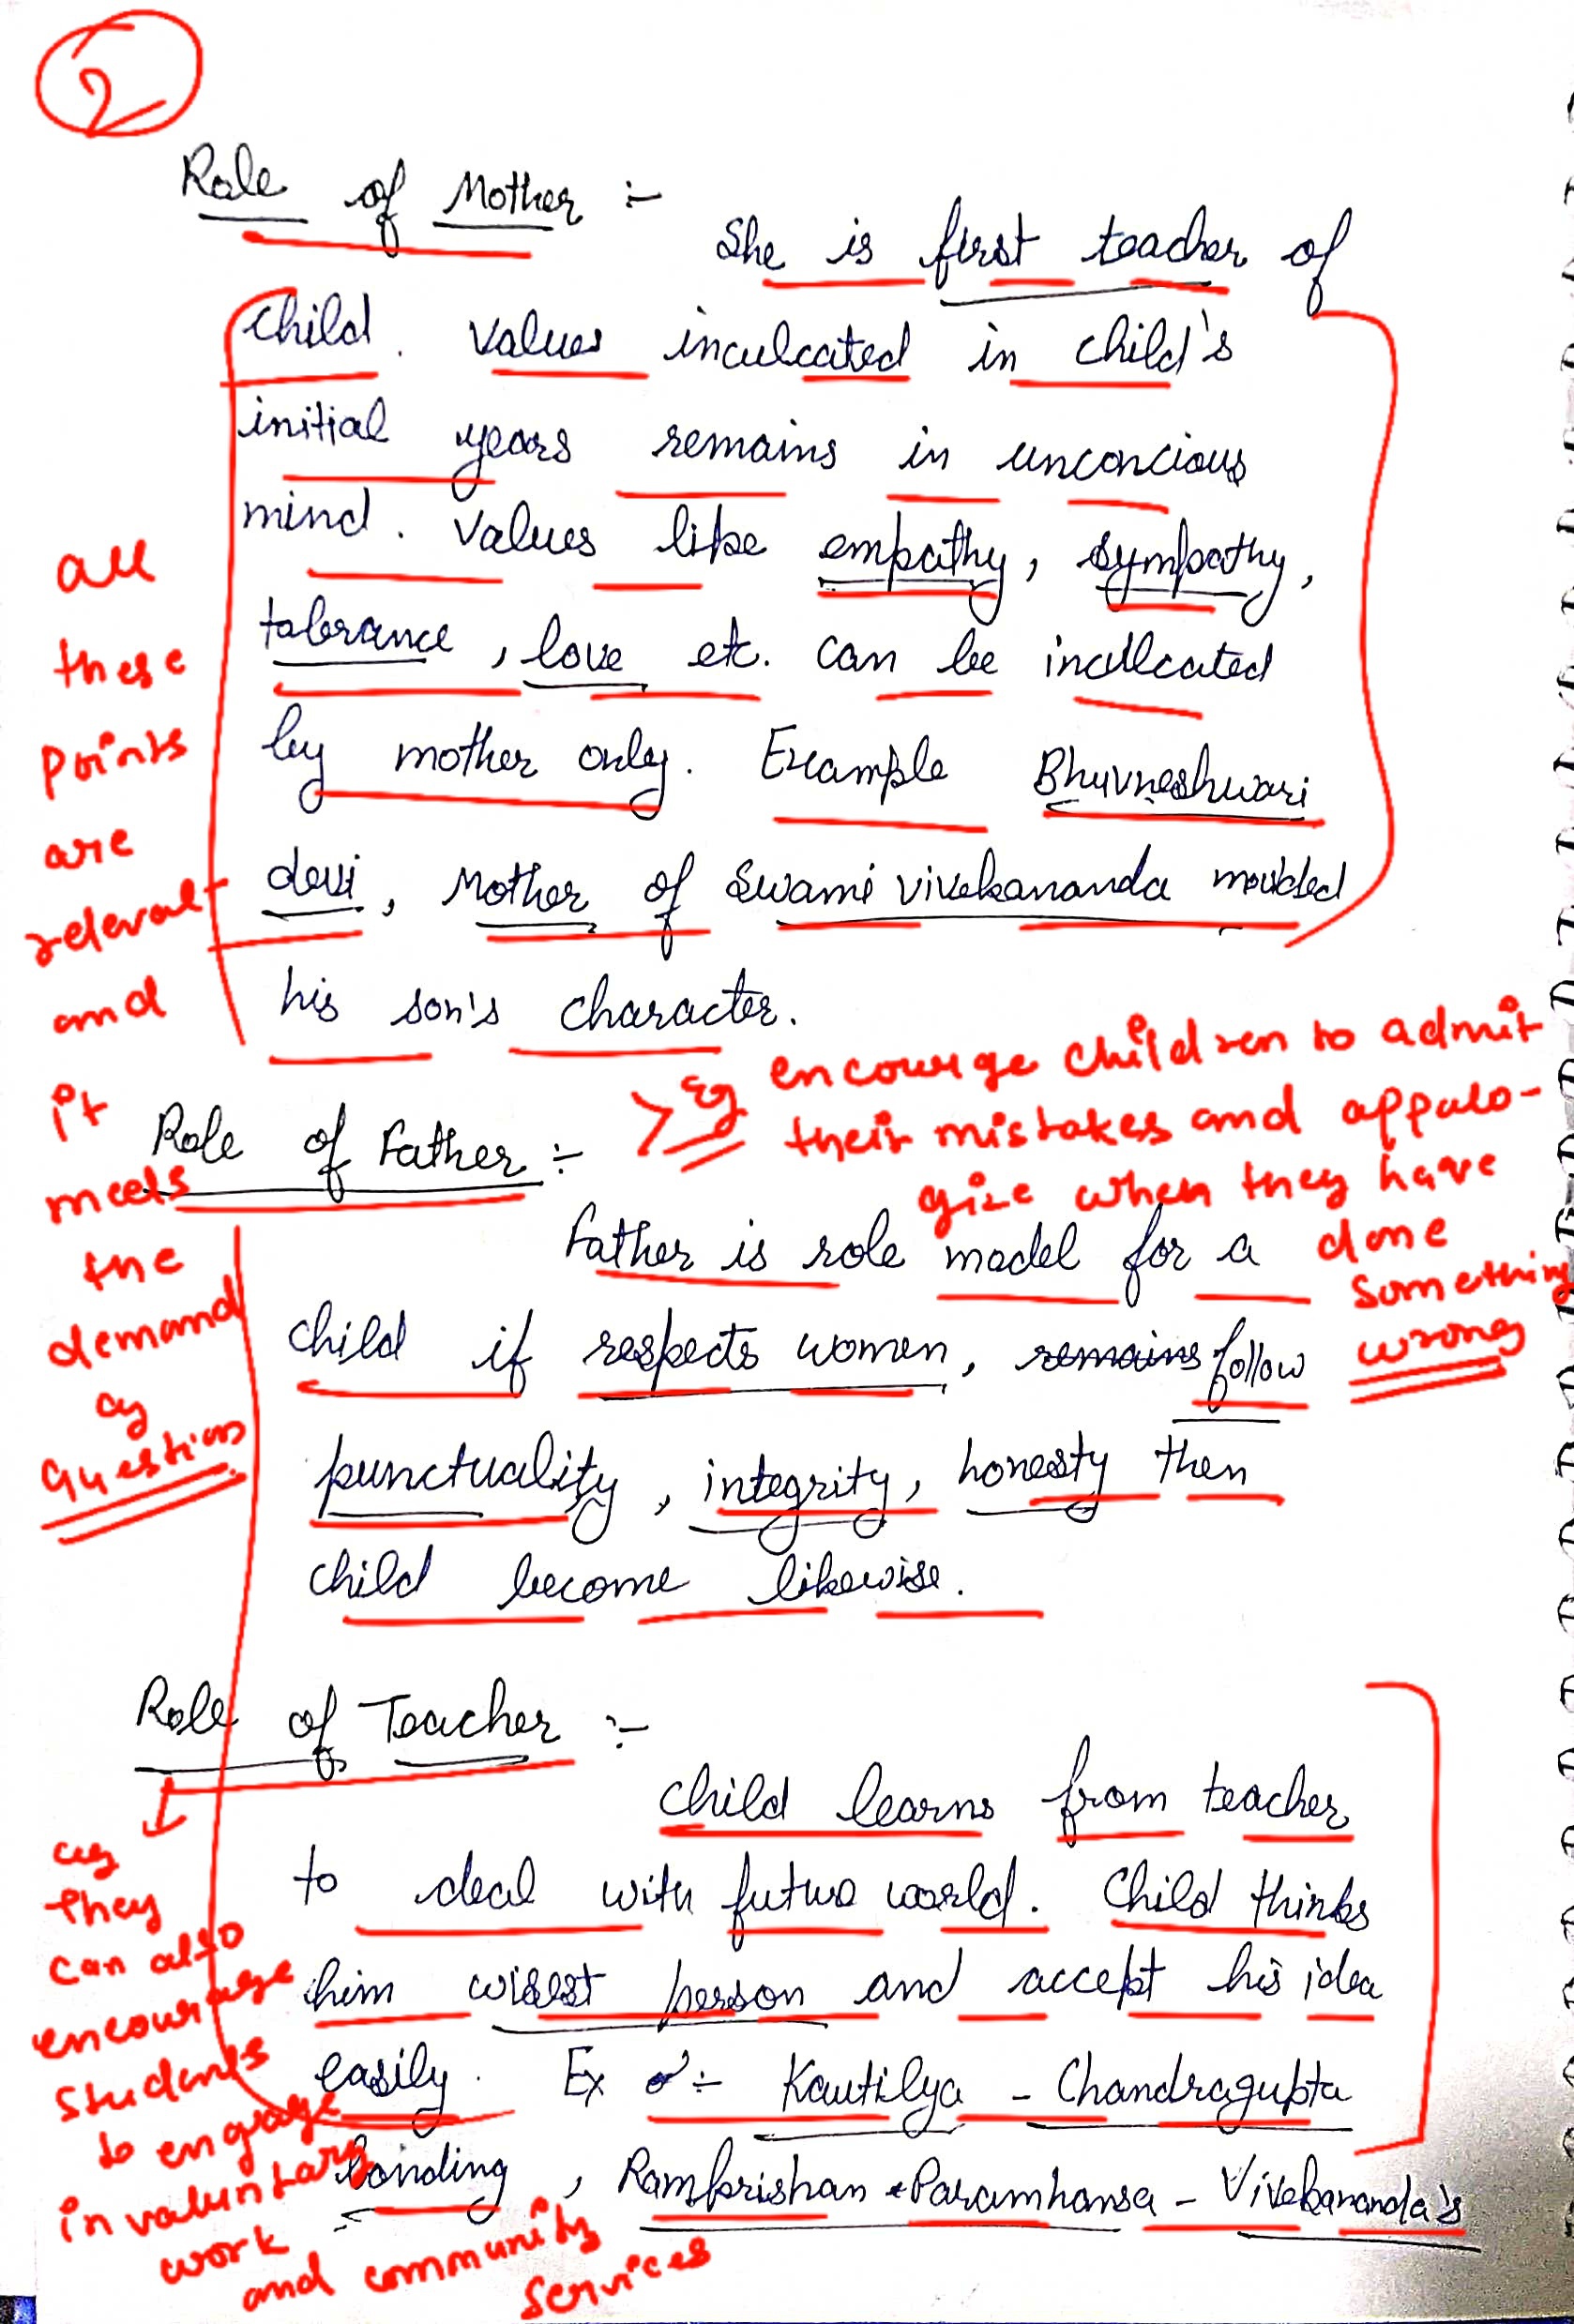 2
Role of Mother :-
She is first teacher of
child. Values inculcated in child's
initial years remains in unconcious
mind. Values like empathy, sympathy,
tolerance, love etc. can be incllcated
by mother only. Example Bhuvneshwari
devi, Mother of Swami vivekananda moulded
his son's character.
all
these
points
are
relevant
and
it
meets
the
demand
of
question
Role of Father :-
Eg encourge children to admit
their mistakes and appalo-
gize when they have
done
something
wrong
Father is role model for a
child if respects women, remains follow
punctuality, integrity, honesty then
child become likewise.
Role of Teacher :-
child learns from teacher
to deal with future world. Child thinks
him wisest person and accept his idea
easily. Ex :- Kautilya - Chandragupta
bonding, Ramkrishan Paramhansa - Vivekananda's
eg
they
can also
encourage
students
to engage
in valuntary
work
and community
services